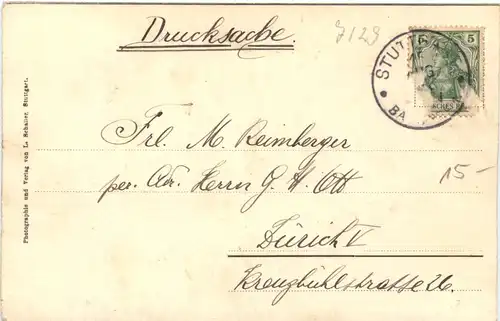 Drucksache.
7129
5 5
STUTT
BA
Frl. M. Reimberger
per. Adr. Herrn G. H. Ott
Zürich V
Kreuzbühlstrasse 26.
15-
Photographie und Verlag von L. Schaller, Stuttgart.